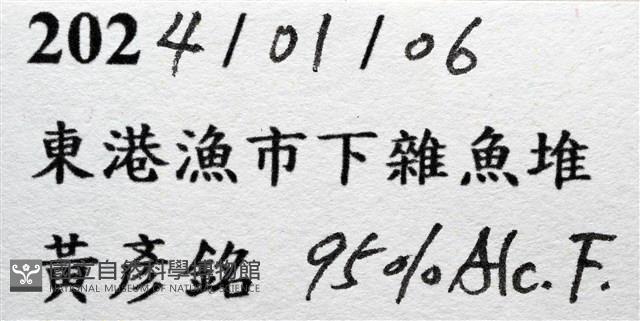 2024/01/06
東港漁市下雜魚堆
黃彥銘 95% Alc. F.
國立自然科學博物館
NATIONAL MUSEUM OF NATURAL SCIENCE